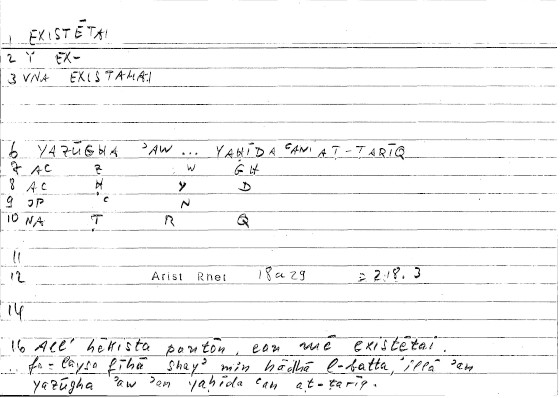 1 EXISTĒTAI
2 Ï EX-
3 VNA EXISTAMAI
6 YAZŪGHA ʾAW ... YAḤĪDA ʿANI AṬ-ṬARĪQ
7 AC Z W GH
8 AC Ḥ Y D
9 JP ʿ N
10 NA Ṭ R Q
11
12 Arist Rhet 18a29 = 218.3
14
16 All' hēkista pantōn, ean mē existētai.
fa-laysa fīhā shayʾ min hādhā l-batta, ʾillā ʾan
yazūgha ʾaw ʾan yaḥīda ʿan aṭ-ṭarīq.